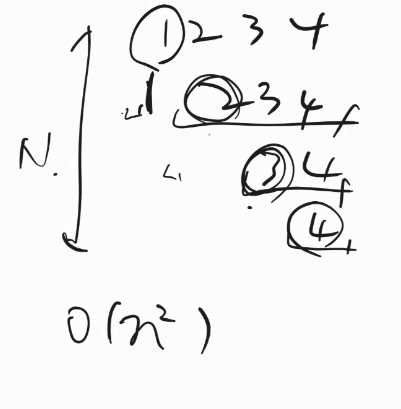 1 2 3 4
2 3 4
3 4
N. 4
O(n²)